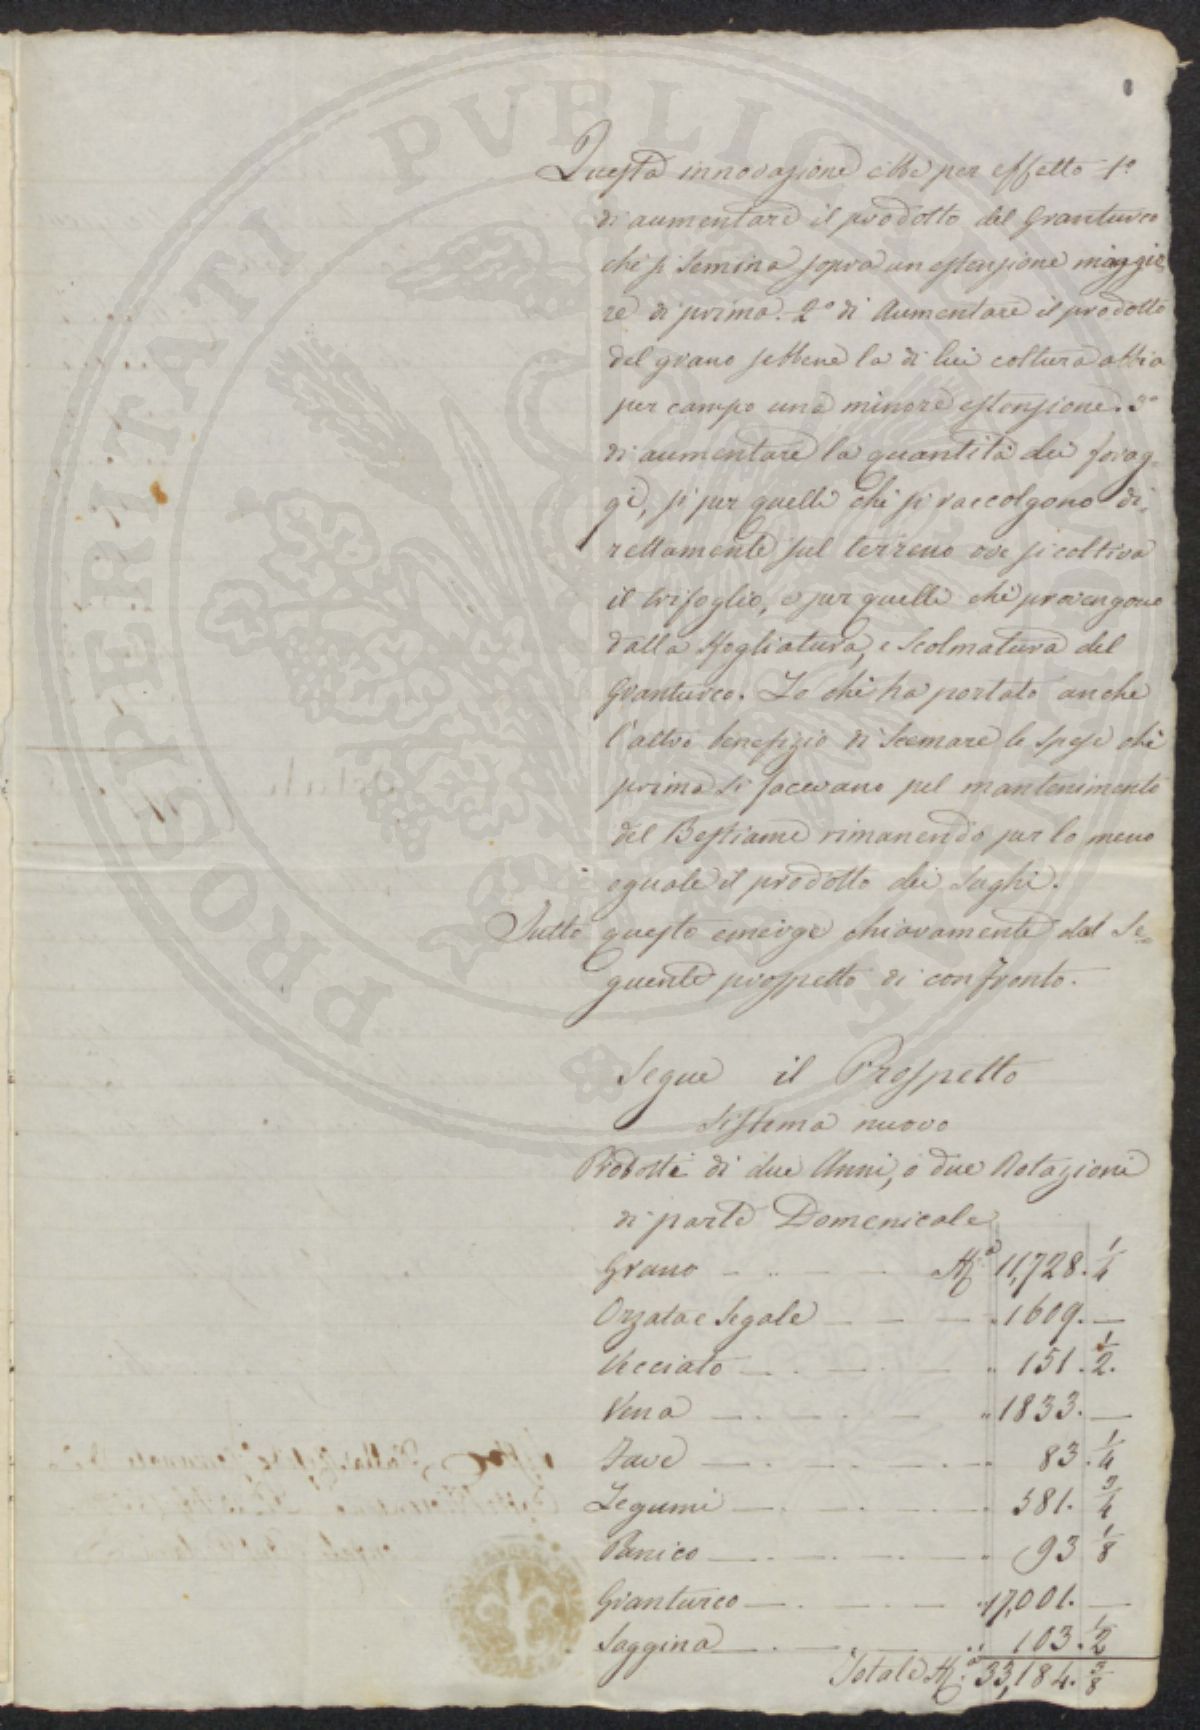 Questa innovazione ebbe per effetto 1º
di aumentare il prodotto del Granturco
che si semina sopra un estensione maggio
re di prima. 2º di Aumentare il prodotto
del grano sebbene la di lui coltura abbia
per campo una minore estensione. 3º
di aumentare la quantità dei forag-
gi, sì per quelli che si raccolgono di-
rettamente sul terreno ove si coltiva
il trifoglio, e per quelli che provengono
dalla sfogliatura, e Scolmatura del
Granturco. Lo che ha portato anche
l'altro benefizio di Scemare le spese che
prima si facevano pel mantenimento
del Bestiame rimanendo per lo meno
eguale il prodotto dei Sughi.
Tutto questo emerge chiaramente dal Se-
guente prospetto di confronto.
Segue il Prospetto
Sistema nuovo
Prodotti di due Anni, o due Rotazioni
di parte Domenicale
Grano 11,728. 1/4
Orzata e Segale " 1609. —
Vecciato " 151. 1/2.
Vena " 1833. —
Fave " 83. 1/4
Legumi " 581. 3/4
Panico " 93 1/8
Granturco " 17,001. —
Saggina " 103. 1/2
Totale 33,184. 3/8
PROSPERITATI PVBLICAE